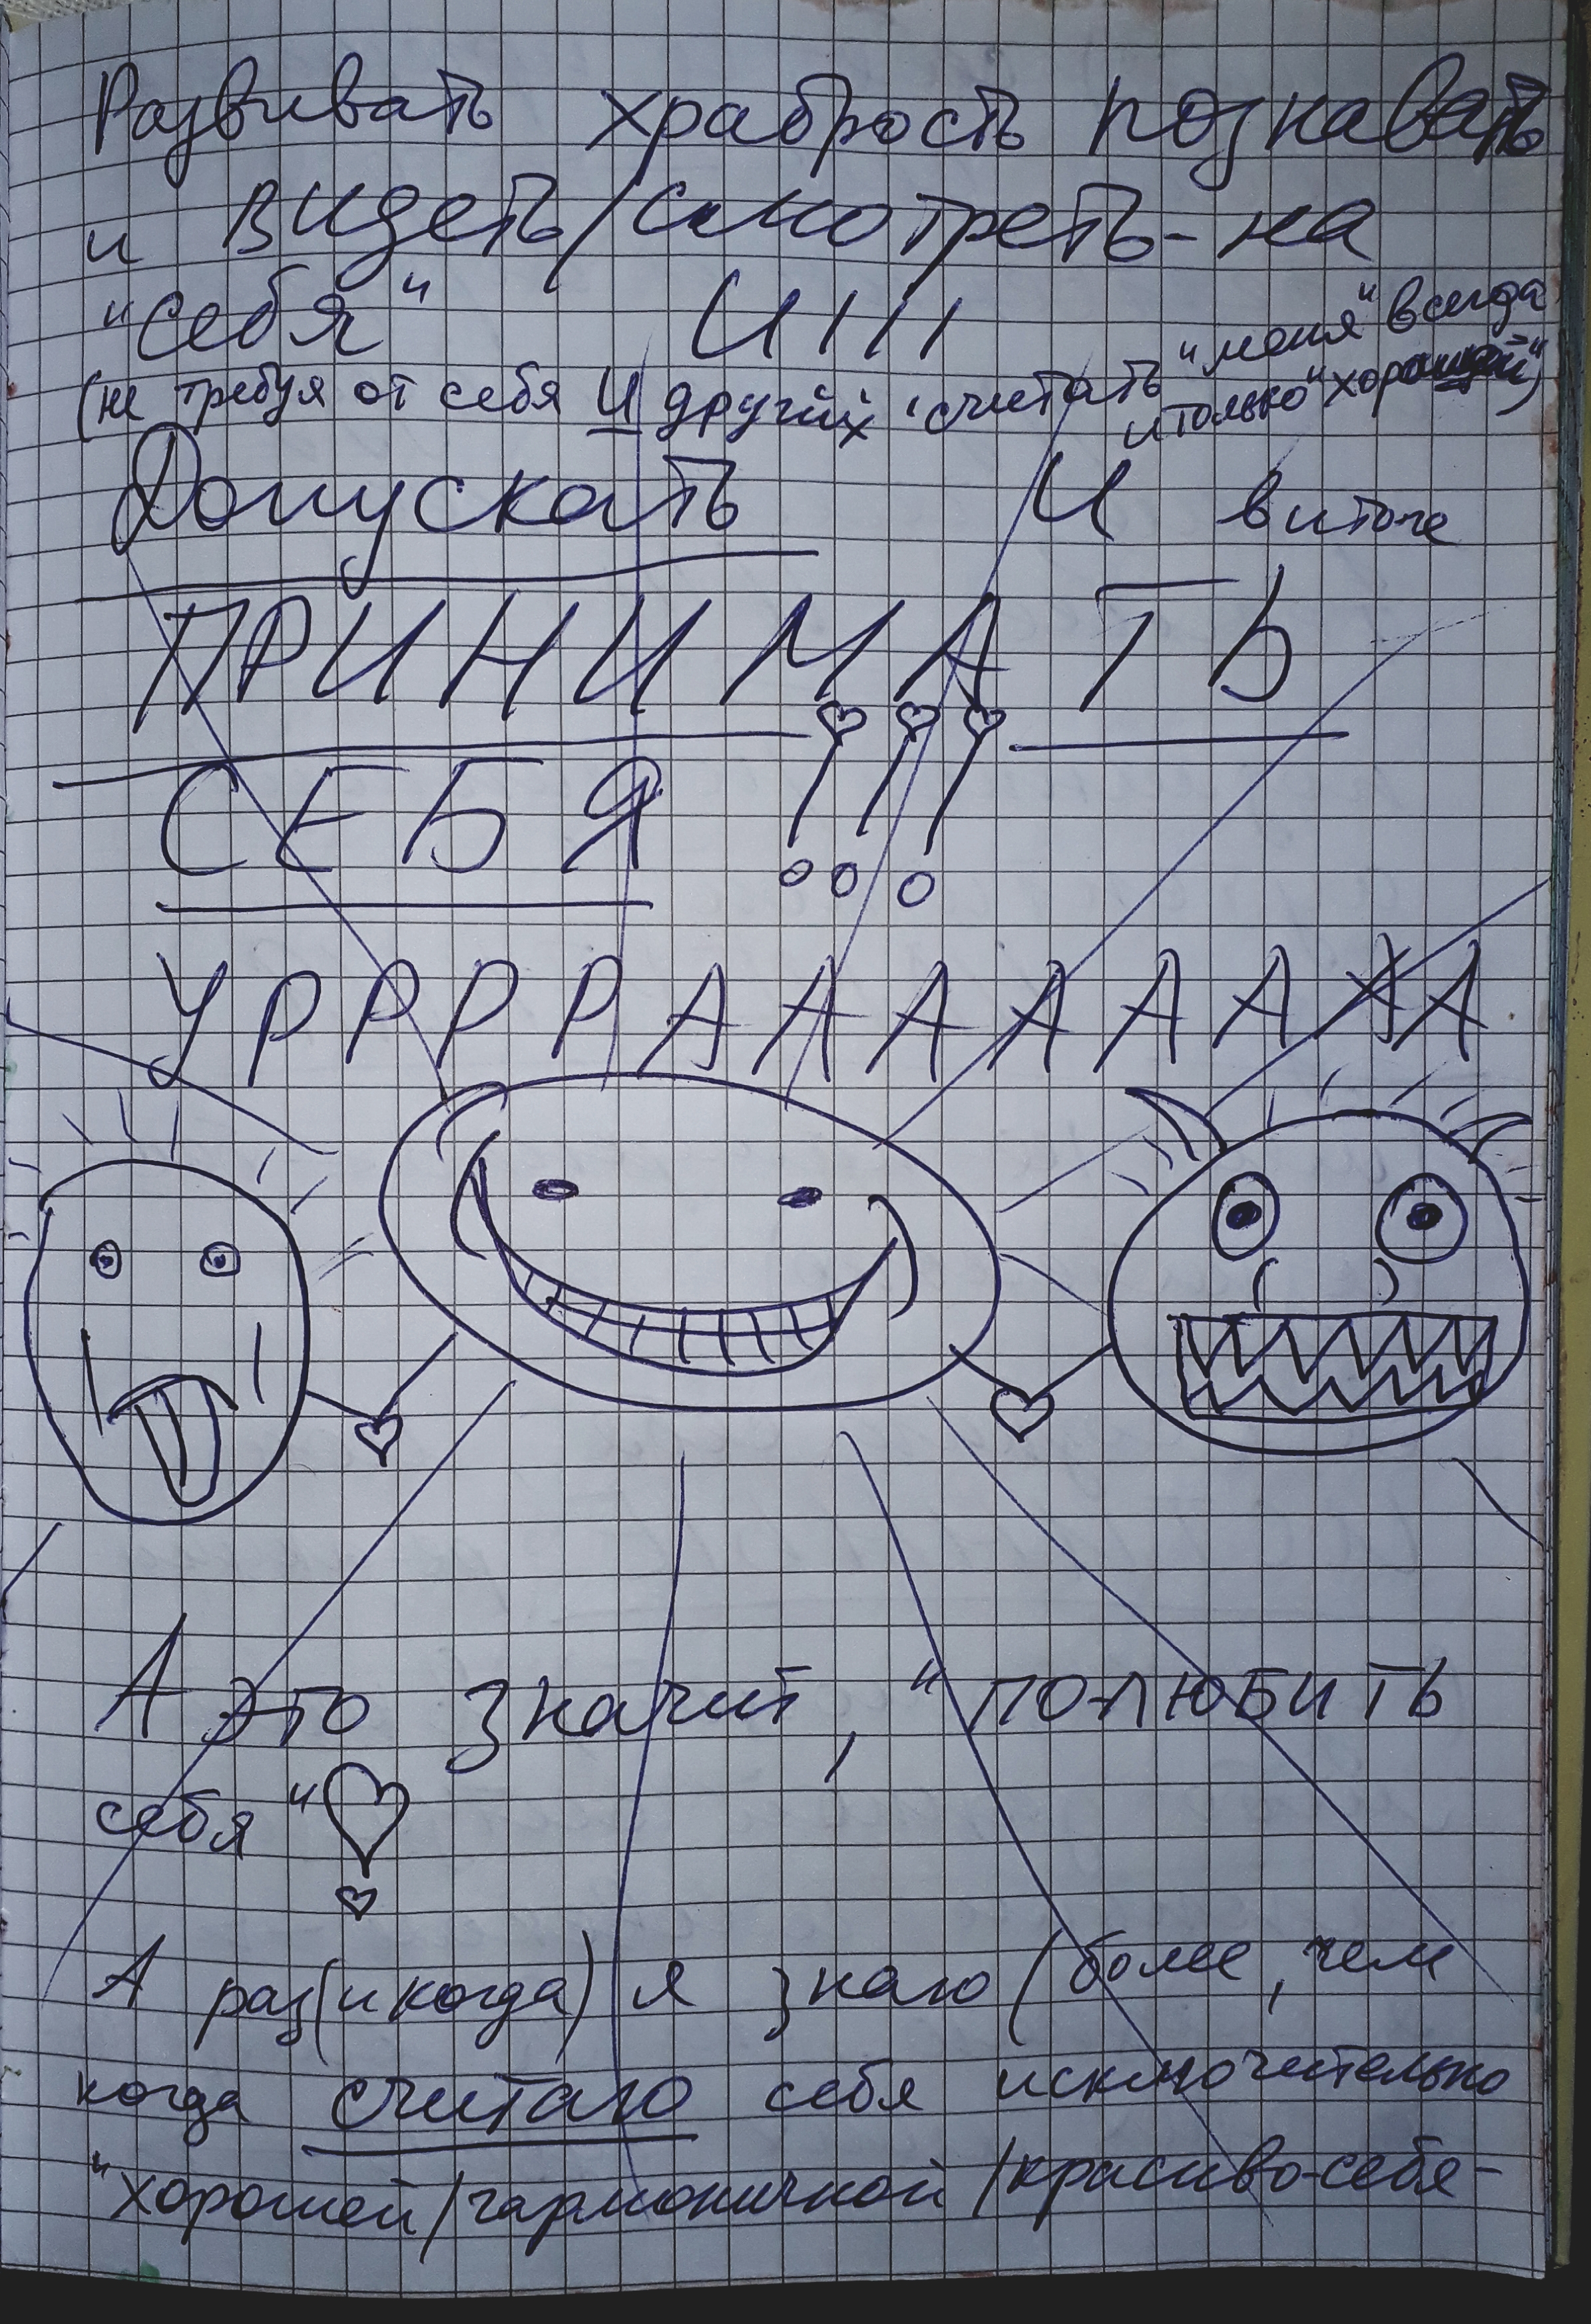 Развивать храбрость познавать
и видеть/смотреть-на
"себя" И!!!
(не требуя от себя И других считать "меня" всегда
и только "хорошей")
Допускать И в итоге
ПРИНИМАТЬ
СЕБЯ !!!
УРРРРААААААААА
А это значит, "ПОЛЮБИТЬ
себя"
А раз(и когда) я знаю (более, чем
когда считаю себя исключительно
"хорошей/гармоничной/красиво-себя-